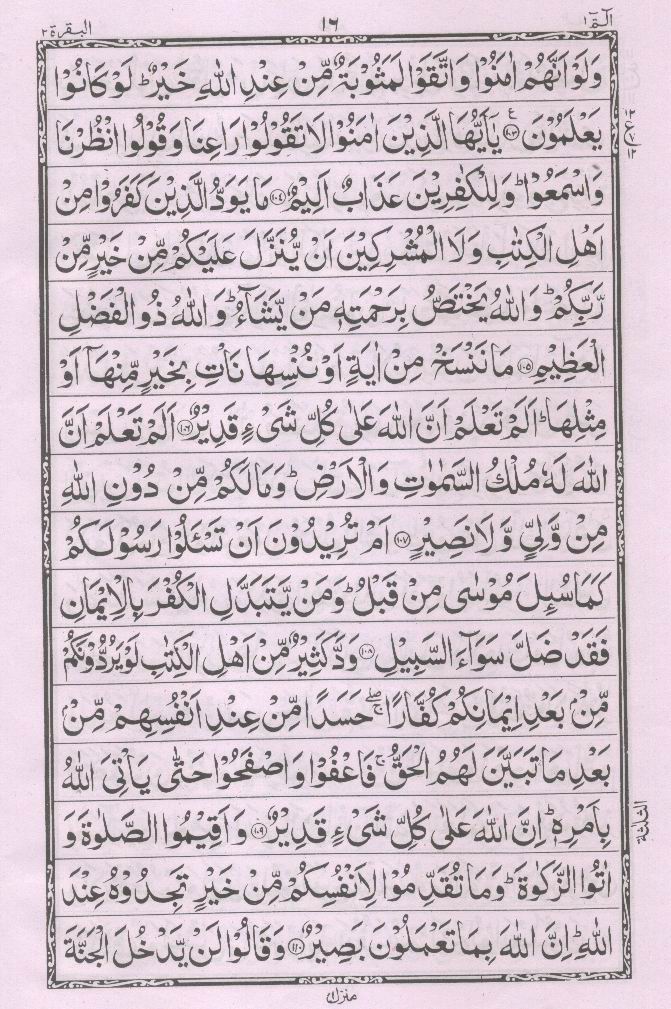 الٓمّٓ ١
١٦
البقرة ٢
وَلَوْ اَنَّهُمْ اٰمَنُوْا وَاتَّقَوْا لَمَثُوْبَةٌ مِّنْ عِنْدِ اللّٰهِ خَيْرٌ ؕ لَوْ كَانُوْا
يَعْلَمُوْنَ ﴿١٠٣﴾ ع يٰۤاَيُّهَا الَّذِيْنَ اٰمَنُوْا لَا تَقُوْلُوْا رَاعِنَا وَقُوْلُوا انْظُرْنَا
وَاسْمَعُوْا ؕ وَلِلْكٰفِرِيْنَ عَذَابٌ اَلِيْمٌ ﴿١٠٤﴾ مَا يَوَدُّ الَّذِيْنَ كَفَرُوْا مِنْ
اَهْلِ الْكِتٰبِ وَلَا الْمُشْرِكِيْنَ اَنْ يُّنَزَّلَ عَلَيْكُمْ مِّنْ خَيْرٍ مِّنْ
رَّبِّكُمْ ؕ وَاللّٰهُ يَخْتَصُّ بِرَحْمَتِهٖ مَنْ يَّشَآءُ ؕ وَاللّٰهُ ذُو الْفَضْلِ
الْعَظِيْمِ ﴿١٠٥﴾ مَا نَنْسَخْ مِنْ اٰيَةٍ اَوْ نُنْسِهَا نَاْتِ بِخَيْرٍ مِّنْهَاۤ اَوْ
مِثْلِهَا ؕ اَلَمْ تَعْلَمْ اَنَّ اللّٰهَ عَلٰى كُلِّ شَيْءٍ قَدِيْرٌ ﴿١٠٦﴾ اَلَمْ تَعْلَمْ اَنَّ
اللّٰهَ لَهٗ مُلْكُ السَّمٰوٰتِ وَالْاَرْضِ ؕ وَمَا لَكُمْ مِّنْ دُوْنِ اللّٰهِ
مِنْ وَّلِيٍّ وَّلَا نَصِيْرٍ ﴿١٠٧﴾ اَمْ تُرِيْدُوْنَ اَنْ تَسْـَٔلُوْا رَسُوْلَكُمْ
كَمَا سُىِٕلَ مُوْسٰى مِنْ قَبْلُ ؕ وَمَنْ يَّتَبَدَّلِ الْكُفْرَ بِالْاِيْمَانِ
فَقَدْ ضَلَّ سَوَآءَ السَّبِيْلِ ﴿١٠٨﴾ وَدَّ كَثِيْرٌ مِّنْ اَهْلِ الْكِتٰبِ لَوْ يَرُدُّوْنَكُمْ
مِّنْۢ بَعْدِ اِيْمَانِكُمْ كُفَّارًا ۖۚ حَسَدًا مِّنْ عِنْدِ اَنْفُسِهِمْ مِّنْۢ
بَعْدِ مَا تَبَيَّنَ لَهُمُ الْحَقُّ ۚ فَاعْفُوْا وَاصْفَحُوْا حَتّٰى يَاْتِيَ اللّٰهُ
بِاَمْرِهٖ ؕ اِنَّ اللّٰهَ عَلٰى كُلِّ شَيْءٍ قَدِيْرٌ ﴿١٠٩﴾ وَاَقِيْمُوا الصَّلٰوةَ وَ
اٰتُوا الزَّكٰوةَ ؕ وَمَا تُقَدِّمُوْا لِاَنْفُسِكُمْ مِّنْ خَيْرٍ تَجِدُوْهُ عِنْدَ
اللّٰهِ ؕ اِنَّ اللّٰهَ بِمَا تَعْمَلُوْنَ بَصِيْرٌ ﴿١١٠﴾ وَقَالُوْا لَنْ يَّدْخُلَ الْجَنَّةَ
ع
١٢
الثلٰثة
منزل ١